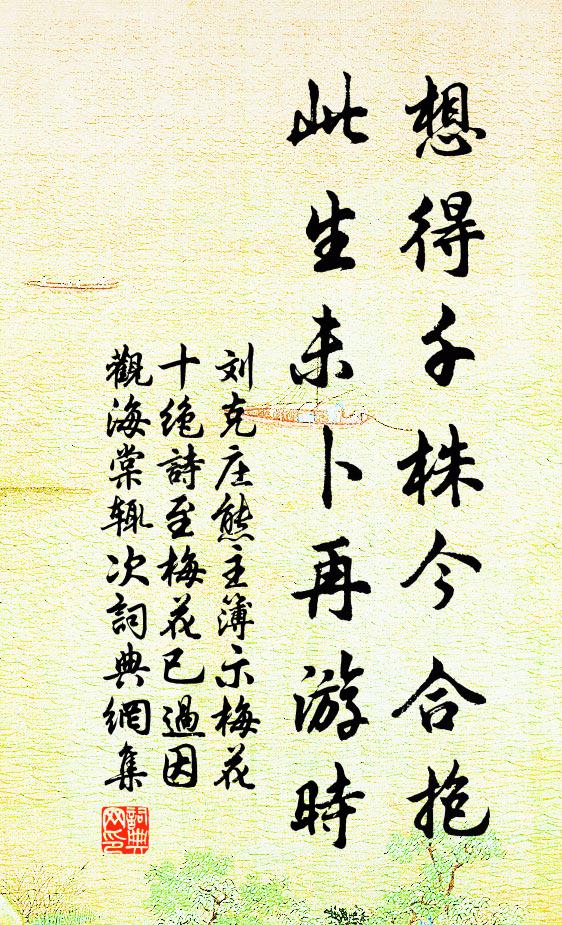 想得千株今合抱
此生未卜再游時
刘克庄熊主簿示梅花
十绝詩至梅花已過因
觀海棠辄次詞典網集
詞典
网印